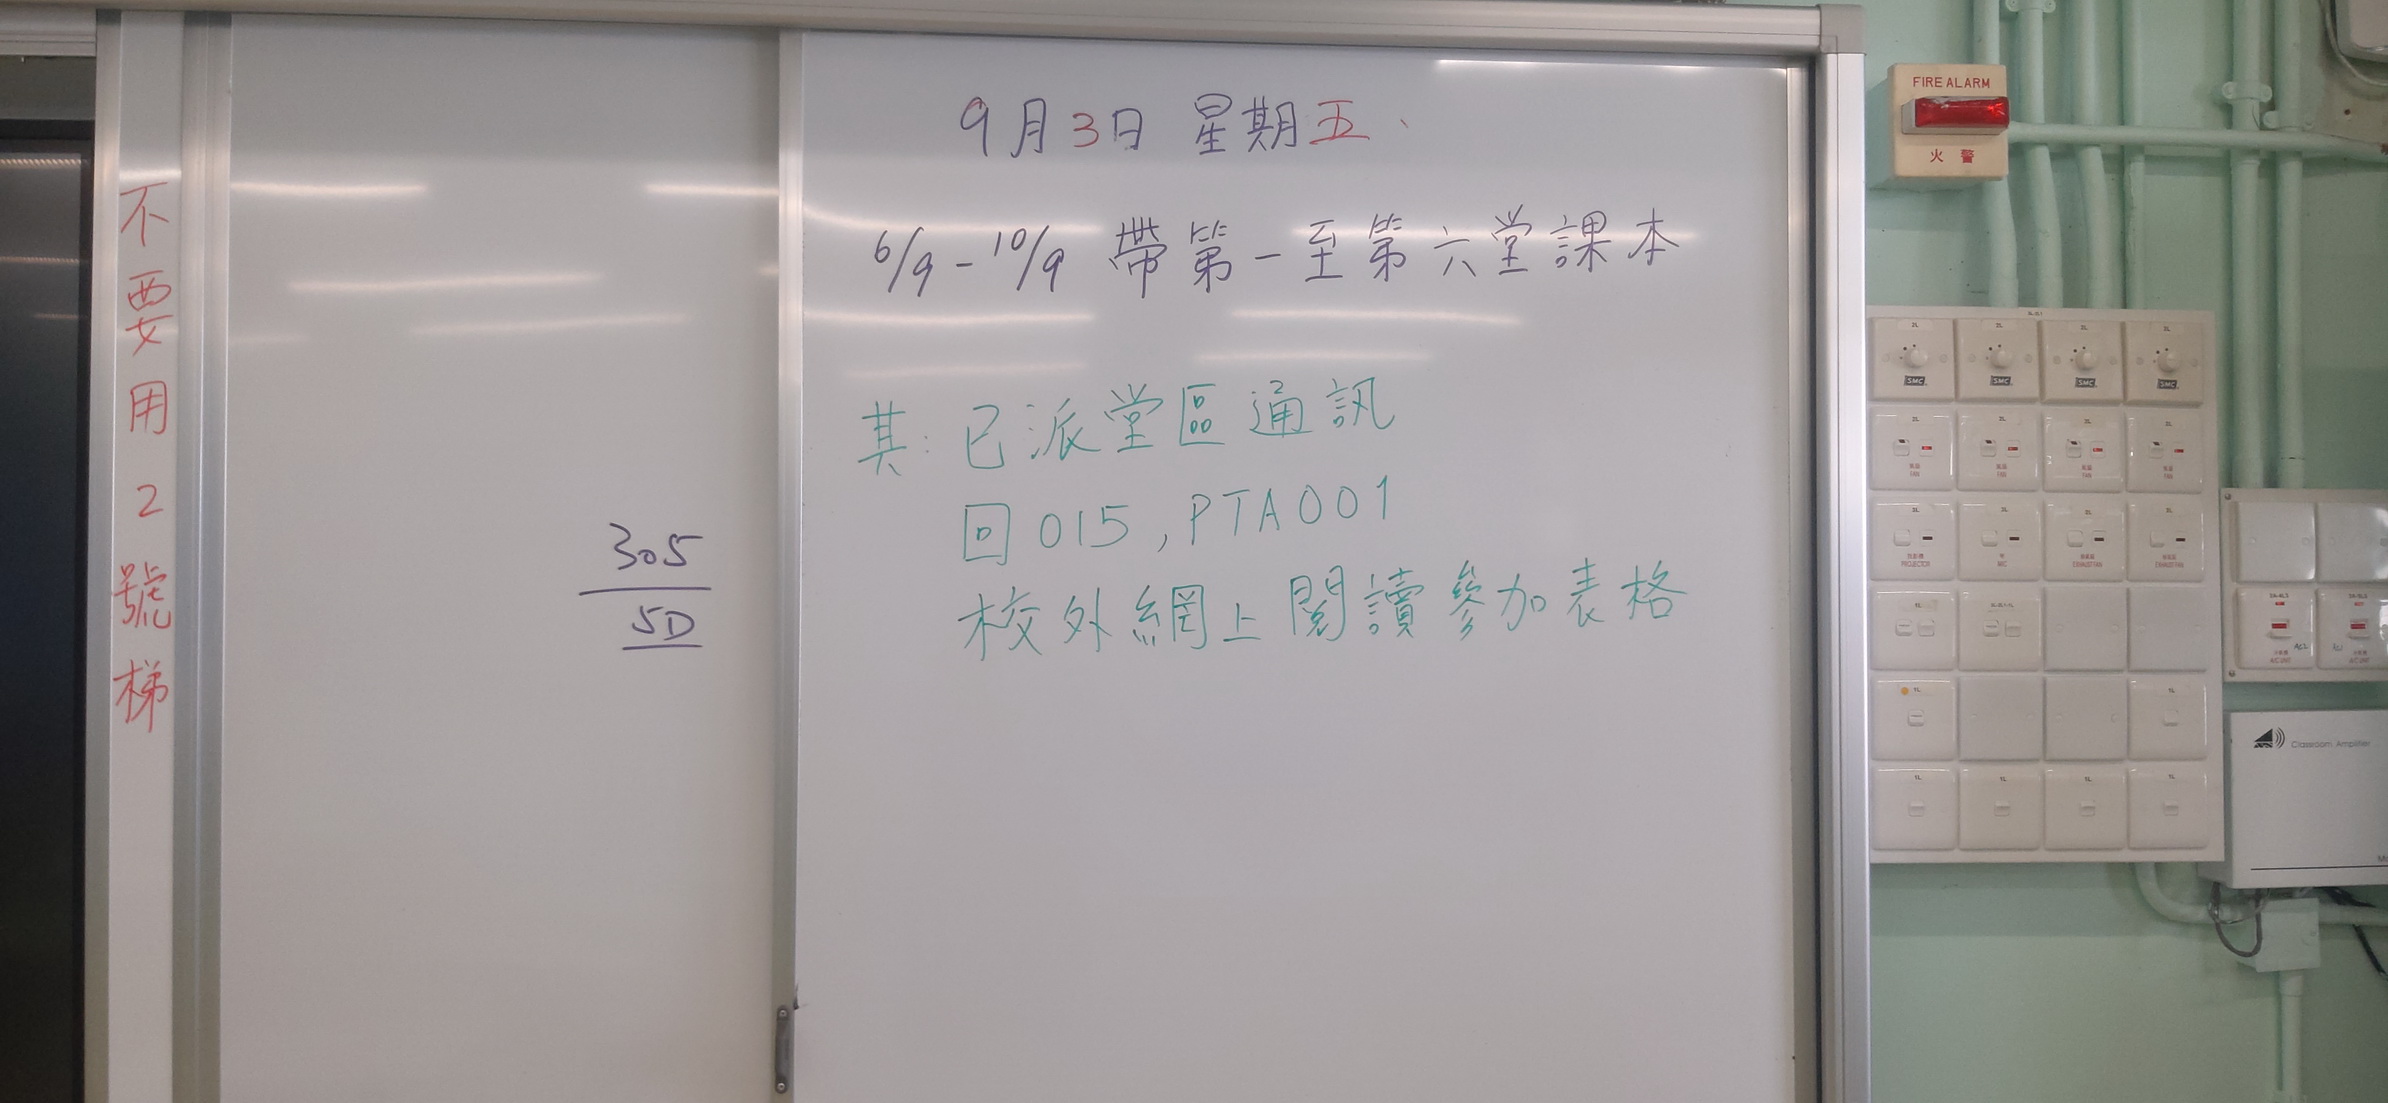 不要用2號梯
305
5D
9月3日 星期五、
6/9-10/9 帶第一至第六堂課本
其:已派堂區通訊
回015,PTA001
校外網上閱讀參加表格
FIRE ALARM
火警
SMC SMC SMC SMC
FAN FAN FAN FAN
PROJECTOR MIC EXHAUST FAN EXHAUST FAN
Classroom Amplifier